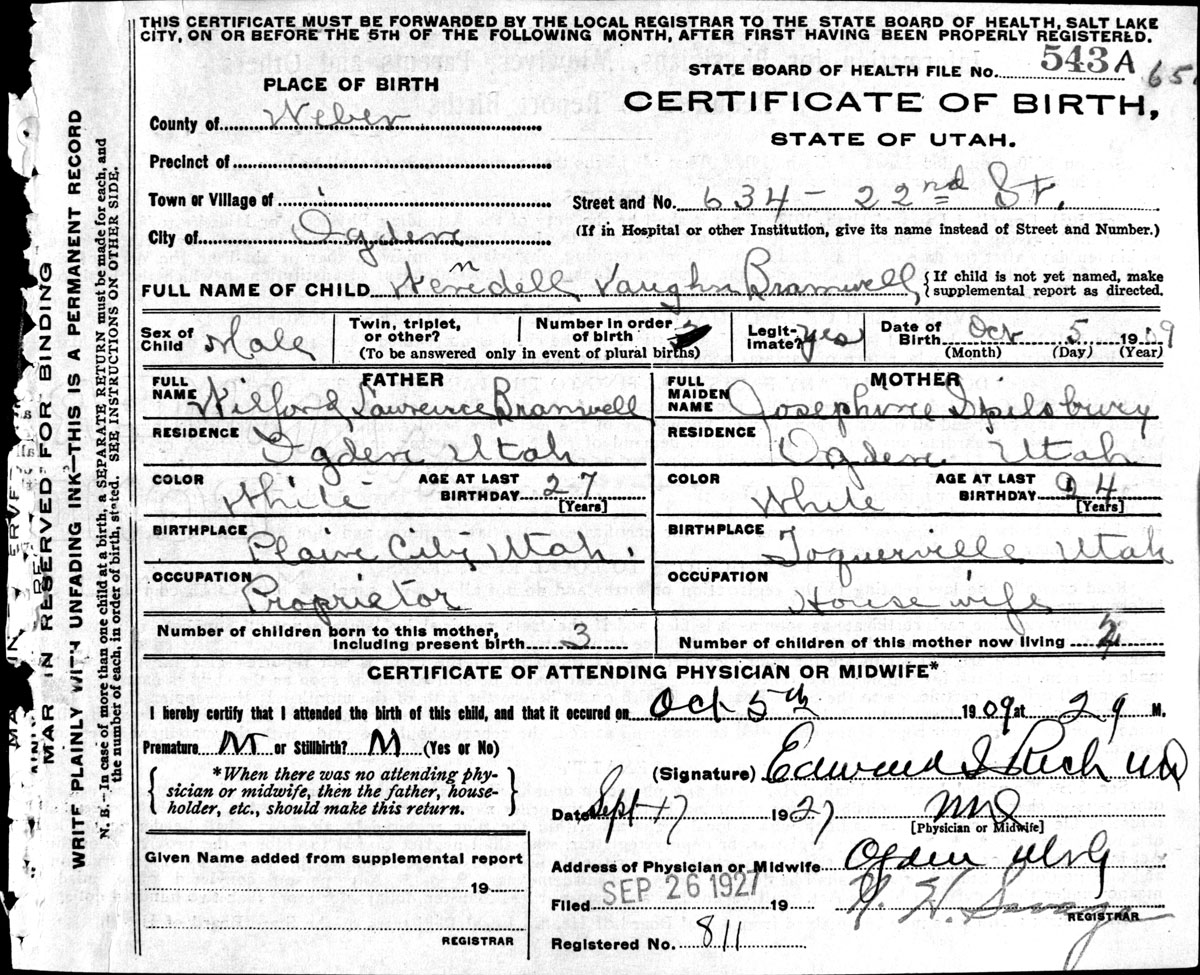 THIS CERTIFICATE MUST BE FORWARDED BY THE LOCAL REGISTRAR TO THE STATE BOARD OF HEALTH, SALT LAKE
CITY, ON OR BEFORE THE 5TH OF THE FOLLOWING MONTH, AFTER FIRST HAVING BEEN PROPERLY REGISTERED.
STATE BOARD OF HEALTH FILE No. 543 A 65
PLACE OF BIRTH
CERTIFICATE OF BIRTH,
STATE OF UTAH.
County of Weber
Precinct of
Town or Village of
Street and No. 634 - 22nd St.
City of Ogden
(If in Hospital or other Institution, give its name instead of Street and Number.)
FULL NAME OF CHILD Wendell Vaughn Bramwell { If child is not yet named, make
supplemental report as directed.
Sex of Child Male
Twin, triplet, or other?
Number in order of birth 3
(To be answered only in event of plural births)
Legitimate? yes
Date of Birth Oct 5 1909
(Month) (Day) (Year)
FATHER
FULL NAME Wilford Lawrence Bramwell
RESIDENCE Ogden Utah
COLOR White
AGE AT LAST BIRTHDAY 27
[Years]
BIRTHPLACE Plain City Utah.
OCCUPATION Proprietor
MOTHER
FULL MAIDEN NAME Josephine Spilsbury
RESIDENCE Ogden Utah
COLOR White
AGE AT LAST BIRTHDAY 24
[Years]
BIRTHPLACE Toquerville Utah
OCCUPATION Housewife
Number of children born to this mother,
including present birth 3
Number of children of this mother now living 2
CERTIFICATE OF ATTENDING PHYSICIAN OR MIDWIFE*
I hereby certify that I attended the birth of this child, and that it occured on Oct 5th 1909 at 2 9 M.
Premature N or Stillbirth? N (Yes or No)
{ *When there was no attending phy-
sician or midwife, then the father, house-
holder, etc., should make this return. }
(Signature) Edward I Rich MD
Date Sept 17 1927 MD
[Physician or Midwife]
Given Name added from supplemental report
19
REGISTRAR
Address of Physician or Midwife Ogden
Filed SEP 26 1927 19
REGISTRAR
Registered No. 811
MAR IN RESERVED FOR BINDING
WRITE PLAINLY WITH UNFADING INK—THIS IS A PERMANENT RECORD
N. B.—In case of more than one child at a birth, a SEPARATE RETURN must be made for each, and
the number of each, in order of birth, stated. SEE INSTRUCTIONS ON OTHER SIDE.